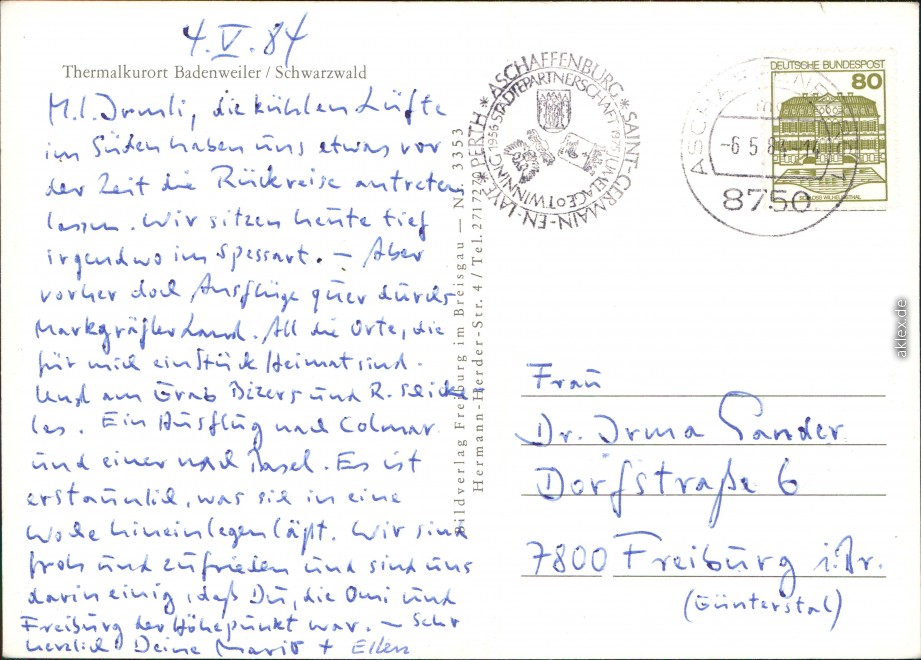 4.V.84
Thermalkurort Badenweiler / Schwarzwald
M.l. Irmli, die kühlen Lüfte
im Süden haben uns etwas vor
der Zeit die Rückreise antreten
lassen. Wir sitzen heute tief
irgendwo im Spessart. – Aber
vorher doch Ausflüge quer durchs
Markgräflerland. All die Orte, die
für mich ein Stück Heimat sind.
Und am Grab Bizers und R. Schicke
les. Ein Ausflug nach Colmar
und einer nach Basel. Es ist
erstaunlich, was sich in eine
Woche hineinlegen läßt. Wir sind
froh und zufrieden und sind uns
darin einig, daß Du, die Omi und
Freiburg der Höhepunkt war. – Sehr
herzlich Deine Mario + Ellen
Bildverlag Freiburg im Breisgau — N 3353
Hermann-Herder-Str. 4 / Tel. 2717220
PERTH * ASCHAFFENBURG * SAINT-GERMAIN-EN-LAYE *
TWINNING 1956 STÄDTEPARTNERSCHAFT 1975 JUMELAGE
DEUTSCHE BUNDESPOST
80
SCHLOSS WILHELMSTHAL
ASCHAFFENBURG
-6.5.84-14
8750
Frau
Dr. Irma Sander
Dorfstraße 6
7800 Freiburg i. Br.
(Günterstal)
aklex.de